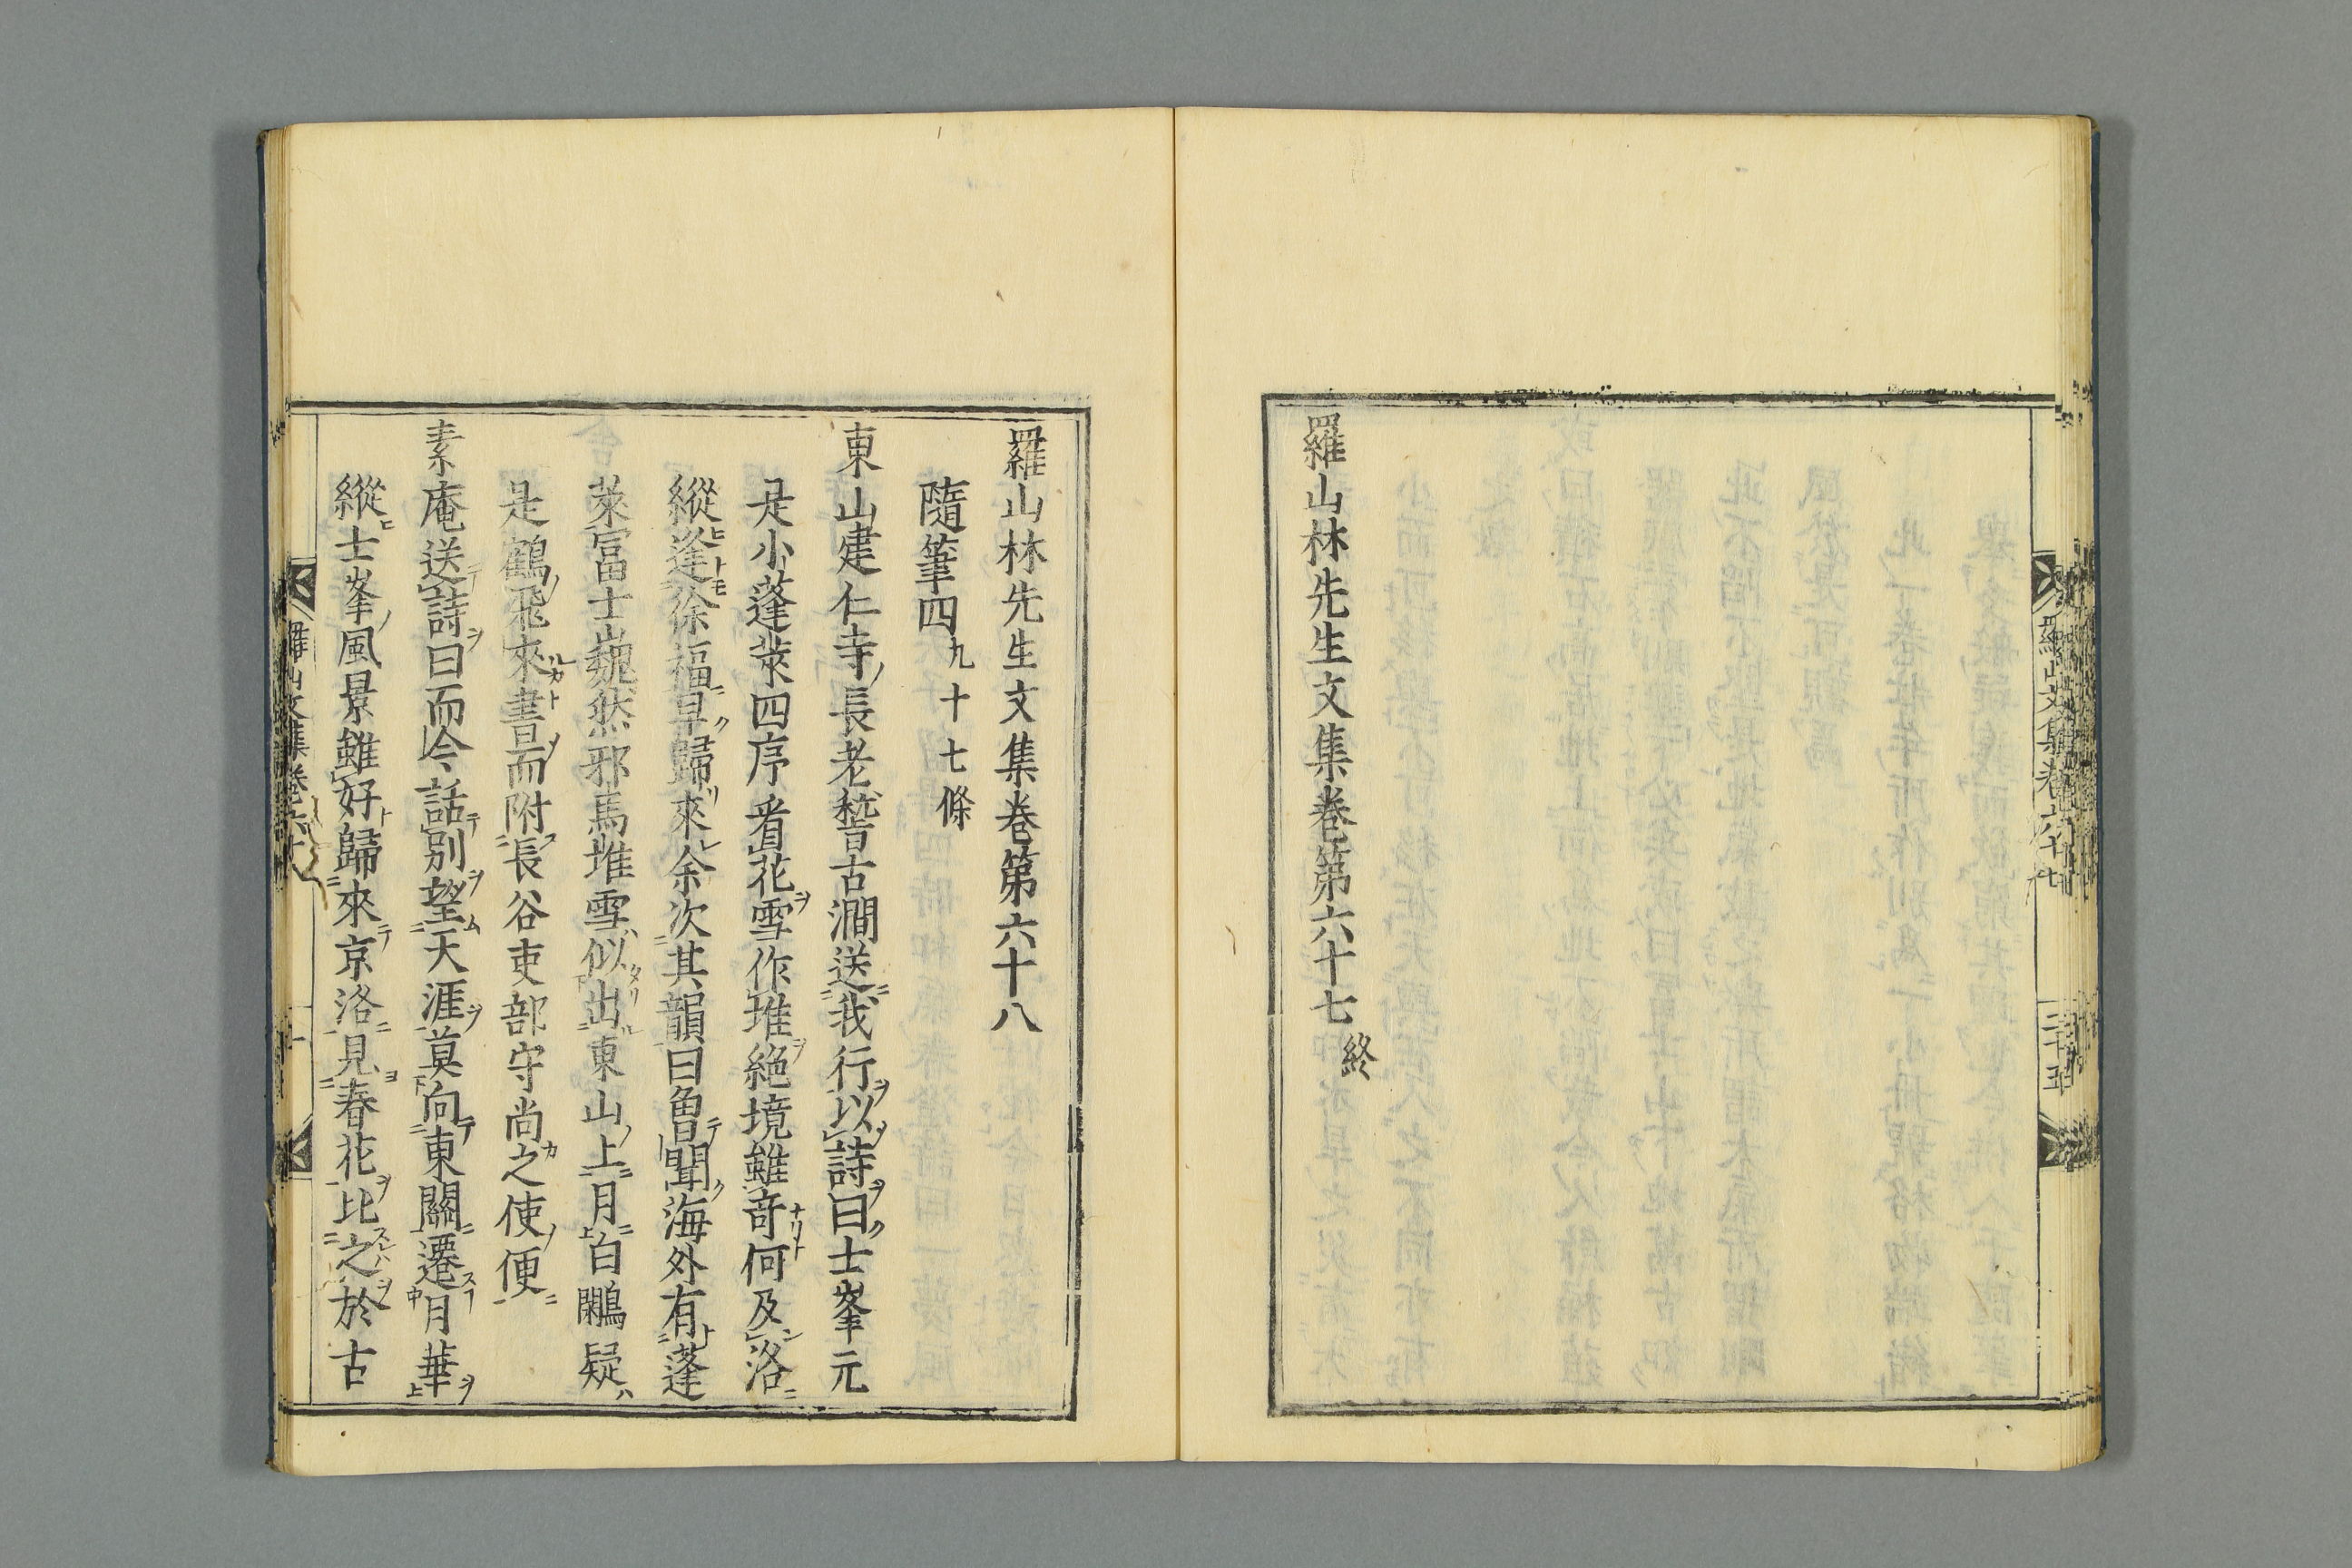 羅山林先生文集卷第六十七終
羅山林先生文集卷第六十八
隨筆四九十七條
東山建仁寺長老嵆古澗送我行以詩曰士峯元
是小蓬萊四序看花雪作堆絕境雖奇何及洛
縱逢徐福早歸來余次其韻曰魯聞海外有蓬
萊富士巍然邪馬堆雪似出東山上月白鷴疑
是鶴飛來書而附長谷吏部守尚之使便
素庵送詩曰而今話別望天涯莫向東關遷月華
縱士峯風景雖好歸來京洛見春花比之於古